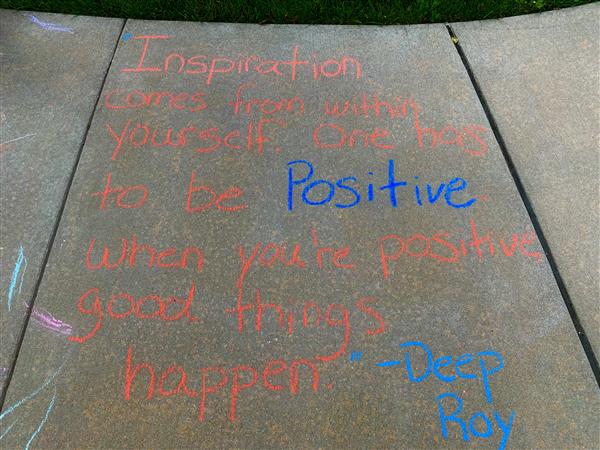 "Inspiration
comes from within
yourself. One has
to be Positive.
When you're positive
good things
happen." -Deep
Roy